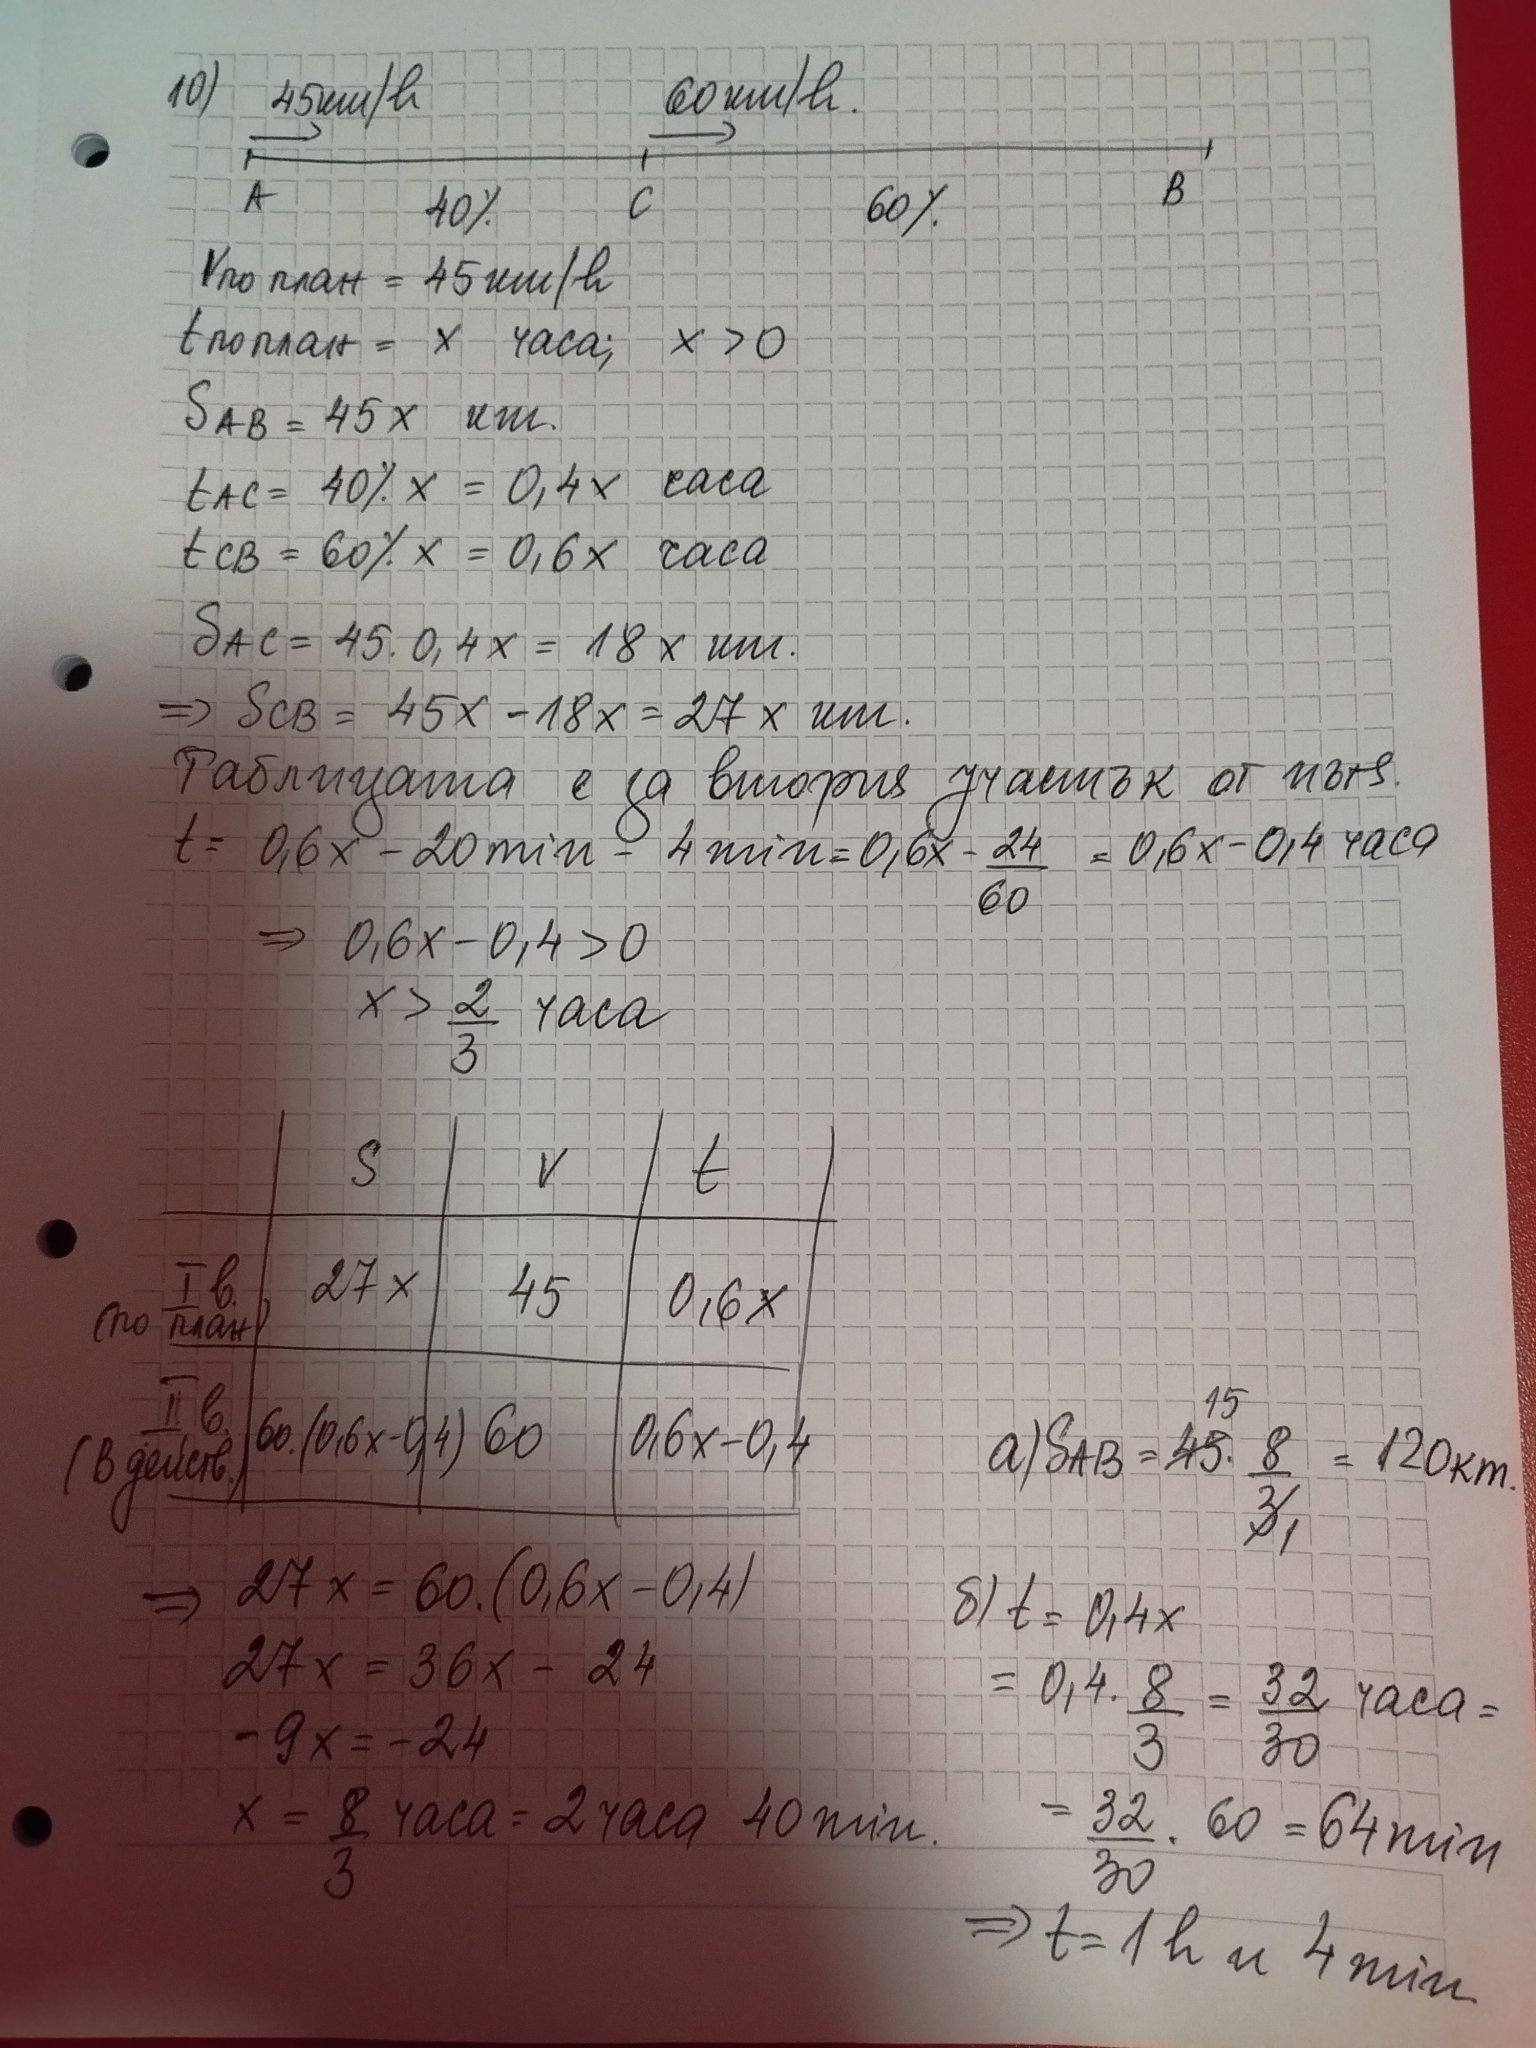 10) 45km/h 60km/h.
A 40% C 60% B
Vпо план = 45km/h
tпо план = x часа; x > 0
SAB = 45x km.
tAC = 40% x = 0,4x часа
tCB = 60% x = 0,6x часа
SAC = 45.0,4x = 18x km.
=> SCB = 45x - 18x = 27x km.
Таблицата е за втория участък от пътя.
t = 0,6x - 20min - 4min = 0,6x - 24/60 = 0,6x - 0,4 часа
=> 0,6x - 0,4 > 0
x > 2/3 часа
S V t
I в. (по план) 27x 45 0,6x
II в. (в действ.) 60.(0,6x-0,4) 60 0,6x-0,4
=> 27x = 60.(0,6x - 0,4)
27x = 36x - 24
-9x = -24
x = 8/3 часа = 2 часа 40 min.
15
а) SAB = 45. 8/3 1 = 120 km.
б) t = 0,4x
= 0,4. 8/3 = 32/30 часа =
= 32/30 . 60 = 64 min
=> t = 1h и 4 min.